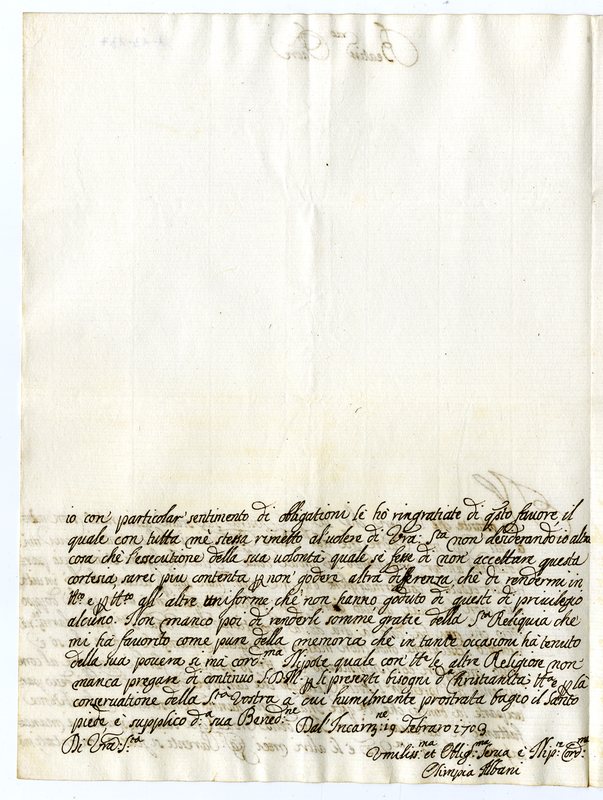 io con particolar sentimento di obligationi le hò ringratiate di q.sto favore, il
quale con tutta mè stessa rimetto al volere di Vra: S.tà non desiderando io altra
cosa che l'esecutione della sua volontà quale se fosse di non accettare questa
cortesia sarei piu contenta p non godere altra differenza che di rendermi in
tt.to e p tt.to all'altre uniforme, che non hanno goduto di questi di privilegio
alcuno. Non manco poi di renderli somme gratie della S.ta Reliquia che
mi hà favorito come pure della memoria che in tante occasioni hà tenuto
della sua povera si mà cord.ma Nipote quale con tt.te le altre Religiose non
manca pregare di continuo S.D.M. p li presenti bisogni d. Xristianità tt.ta e p la
conservatione della S.tà Vostra à cui humilmente prostrata bagio il Santo
piede e supplico d.a sua Bened.ne Dal Incarn.ne 19 Febraro 1709
Di Vra: S.tà
Umiliss.ma et Oblig.ma Serva e Nip.e Cord.ma
Olimpia Albani